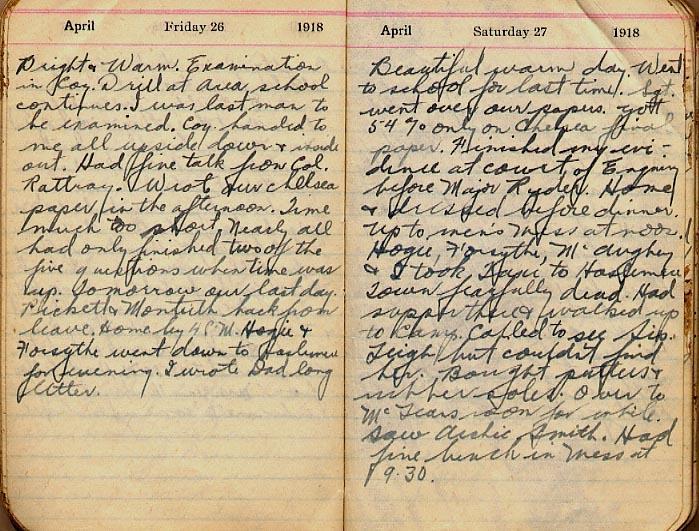 April Friday 26 1918
Bright & Warm. Examination
in Coy. Drill at area school
continues. I was last man to
be examined. Coy. handed to
me all upside down & inside
out. Had fine talk from Col.
Rattray. Wrote our Chelsea
paper in the afternoon. Time
much too short. Nearly all
had only finished two of the
five questions when time was
up. Tomorrow our last day.
Pickett & Monteith back from
leave. Home by G.C.M. Hogie &
Forsythe went down to Haslemere
for evening. I wrote Dad long
letter.
April Saturday 27 1918
Beautiful warm day. Went
to school for last time. Sgt.
went over our papers. Got
54% only on Chelsea final
paper. Finished my evi-
dence at court of Enquiry
before Major Ryder. Home
& dressed before dinner.
Up to men's Mess at noon.
Hogie, Forsythe, McAughey
& I took to Haslemere
Town fearfully dead. Had
supper there & walked up
to Camp. Called to see
Leigh but couldn't find
her. Bought puttees &
rubber soles. Over to
room for while.
Saw Archie Smith. Had
fine lunch in Mess at
9.30.